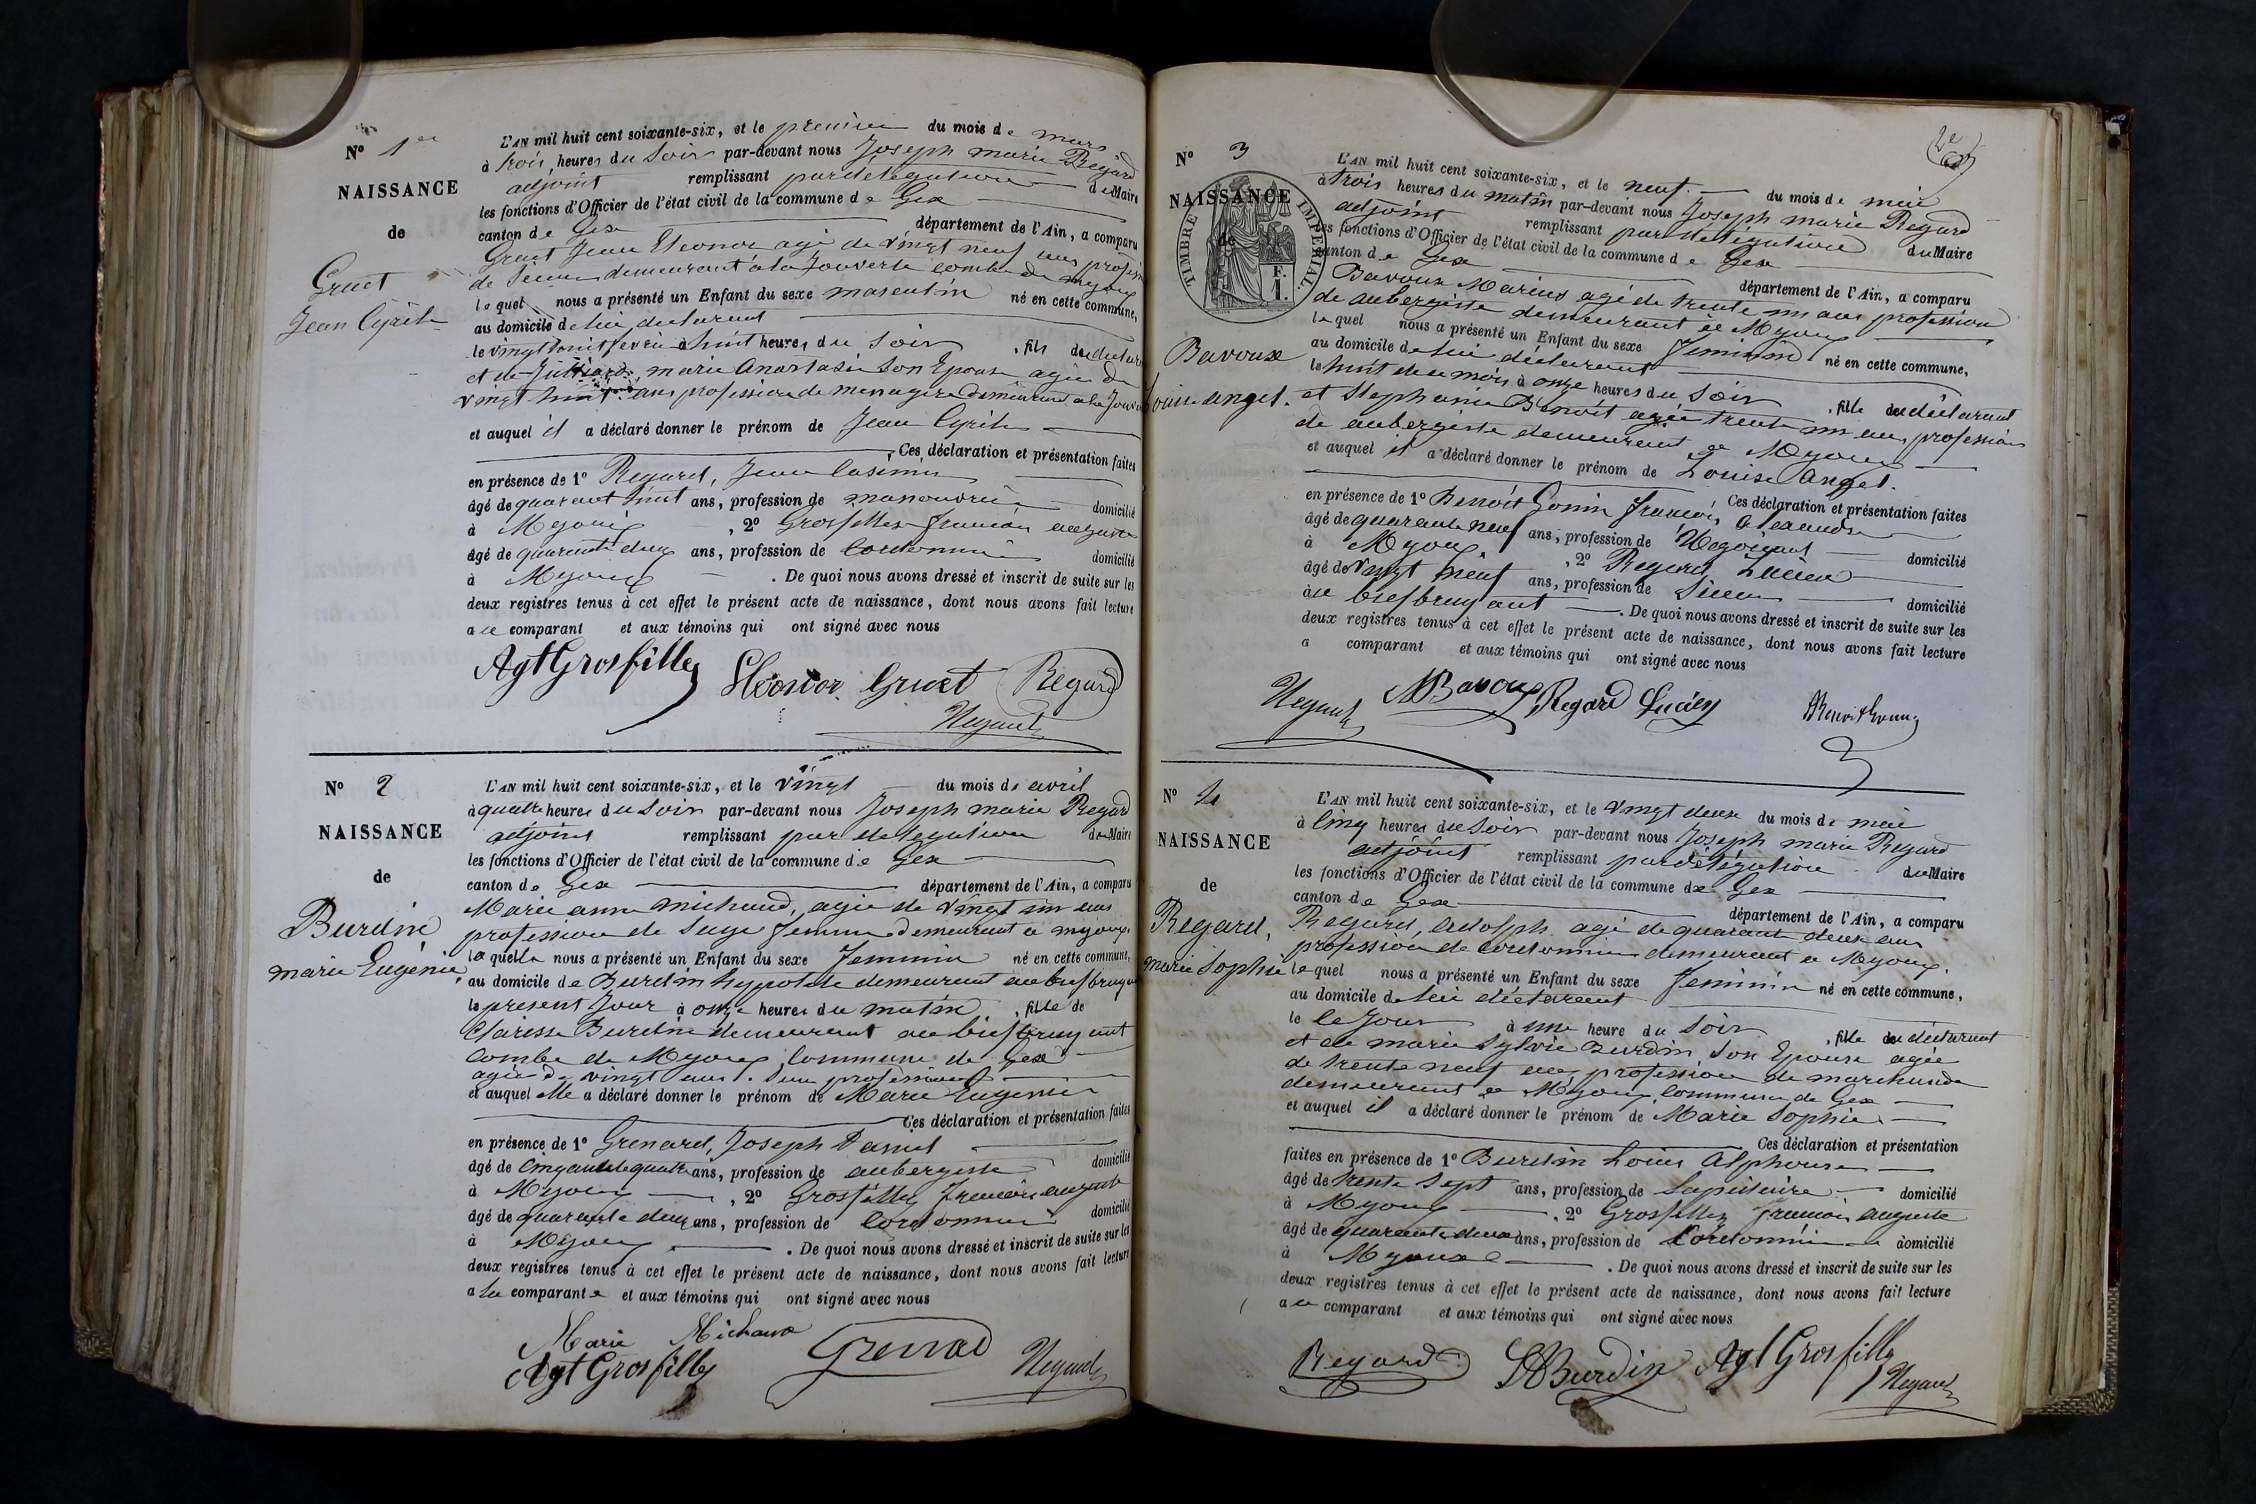 N° 1er
NAISSANCE
de
Gruet
Jean Cyrile
L'AN mil huit cent soixante-six, et le premier du mois de mars
à trois heures du Soir par-devant nous Joseph marie Regard
adjoint remplissant par délégation du Maire
les fonctions d'Officier de l'état civil de la commune de Gex
canton de Gex département de l'Ain, a comparu
Gruet Jean Eleonor agé de vingt neuf ans profession
de demeurant à la Jouverte combe de myoux
lequel nous a présenté un Enfant du sexe masculin né en cette commune,
au domicile de lui déclarant
le vingt huit fevrie à huit heures du Soir , fils du déclarant
et de Julliard marie Anastasie son Epouse agée de
vingt huit ans profession de menagere demeurant a la Jouverte
et auquel il a déclaré donner le prénom de Jean Cyrile
Ces déclaration et présentation faites
en présence de 1° Regard, Jean Casimir
âgé de quarant huit ans, profession de domicilié
à Myoux , 2° Grosfilley francois auguste
âgé de quarante deux ans, profession de Cordonnier domicilié
à Myoux . De quoi nous avons dressé et inscrit de suite sur les
deux registres tenus à cet effet le présent acte de naissance, dont nous avons fait lecture
a u comparant et aux témoins qui ont signé avec nous
Agt Grosfilley Eléonor Gruet Regard
Regard
N° 2
NAISSANCE
de
Burdin
marie Eugénie
L'AN mil huit cent soixante-six, et le vingt du mois de avril
à quatre heures du Soir par-devant nous Joseph marie Regard
adjoint remplissant par delegation du Maire
les fonctions d'Officier de l'état civil de la commune de Gex
canton de Gex département de l'Ain, a comparu
Marie anne michaud, agée de vingt six ans
profession de Sage femme demeurant a myoux,
laquelle nous a présenté un Enfant du sexe Feminin né en cette commune,
au domicile de Burdin hypolite demeurant au biefbruyant
le present Jour à onze heures du matin , fille de
Clarisse Burdin demeurant au biefbruyant
Combe de Myoux Commune de Gex
agée de vingt ans. Sans profession
et auquel elle a déclaré donner le prénom de Marie Eugenie
Ces déclaration et présentation faites
en présence de 1° Grenard, Joseph Daniel
âgé de cinquante quatre ans, profession de aubergiste domicilié
à Myoux , 2° Grosfilley francois auguste
âgé de quarante deux ans, profession de Cordonnier domicilié
à Myoux . De quoi nous avons dressé et inscrit de suite sur les
deux registres tenus à cet effet le présent acte de naissance, dont nous avons fait lecture
a la comparante et aux témoins qui ont signé avec nous
Marie Michaud
Agt Grosfilley Grenard Regard
2e
N° 3
NAISSANCE
de
TIMBRE IMPERIAL.
1 F.
Bavoux
Louise anget.
L'AN mil huit cent soixante-six, et le neuf du mois de mai
à trois heures du matin par-devant nous Joseph marie Regard
adjoint remplissant par délégation du Maire
les fonctions d'Officier de l'état civil de la commune de Gex
canton de Gex département de l'Ain, a comparu
Bavoux Marius agé de trente un ans profession
de aubergiste demeurant a Myoux
lequel nous a présenté un Enfant du sexe Feminin né en cette commune,
au domicile de lui déclarant
le huit de ce mois à onze heures du Soir , fille du déclarant
et Stephanie Benoit agée trente un ans, profession
de aubergiste demeurant a Myoux
et auquel il a déclaré donner le prénom de Louise Anget.
Ces déclaration et présentation faites
en présence de 1° Benoit Gonin francois Alexandre
âgé de quarante neuf ans, profession de Negociant domicilié
à Myoux , 2° Regard Lucien
âgé de vingt neuf ans, profession de domicilié
à u biefbruyant . De quoi nous avons dressé et inscrit de suite sur les
deux registres tenus à cet effet le présent acte de naissance, dont nous avons fait lecture
a comparant et aux témoins qui ont signé avec nous
Regard MBavoux Regard Lucien Benoit Gonin
N° 4
NAISSANCE
de
Regard,
marie Sophie
L'AN mil huit cent soixante-six, et le vingt deux du mois de mai
à Cinq heures du Soir par-devant nous Joseph marie Regard
adjoint remplissant par délégation du Maire
les fonctions d'Officier de l'état civil de la commune de Gex
canton de Gex département de l'Ain, a comparu
Regard, adolph agé de quarante deux ans
profession de cordonnier demeurant a Myoux.
lequel nous a présenté un Enfant du sexe Feminin né en cette commune,
au domicile de lui déclarant
le ce Jour à une heure du Soir , fille du déclarant
et de marie Sylvie Burdin, Son Epouse agée
de trente neuf ans profession de marchande
demeurant a Myoux, commune de Gex
et auquel il a déclaré donner le prénom de Marie Sophie
Ces déclaration et présentation
faites en présence de 1° Burdin Louis Alphonse
âgé de trente sept ans, profession de Lapidaire domicilié
à Myoux , 2° Grosfilley francois auguste
âgé de quarante deux ans, profession de Cordonnier domicilié
à Myoux . De quoi nous avons dressé et inscrit de suite sur les
deux registres tenus à cet effet le présent acte de naissance, dont nous avons fait lecture
a u comparant et aux témoins qui ont signé avec nous
Regard LABurdin Agt Grosfilley
Regard